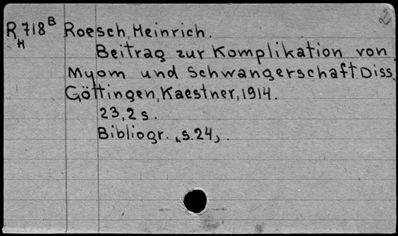 2
R 718 B Roesch, Heinrich.
H
Beitrag zur Komplikation von
Myom und Schwangerschaft Diss.
Göttingen, Kaestner, 1914.
23, 2 s.
Bibliogr. „s. 24„.